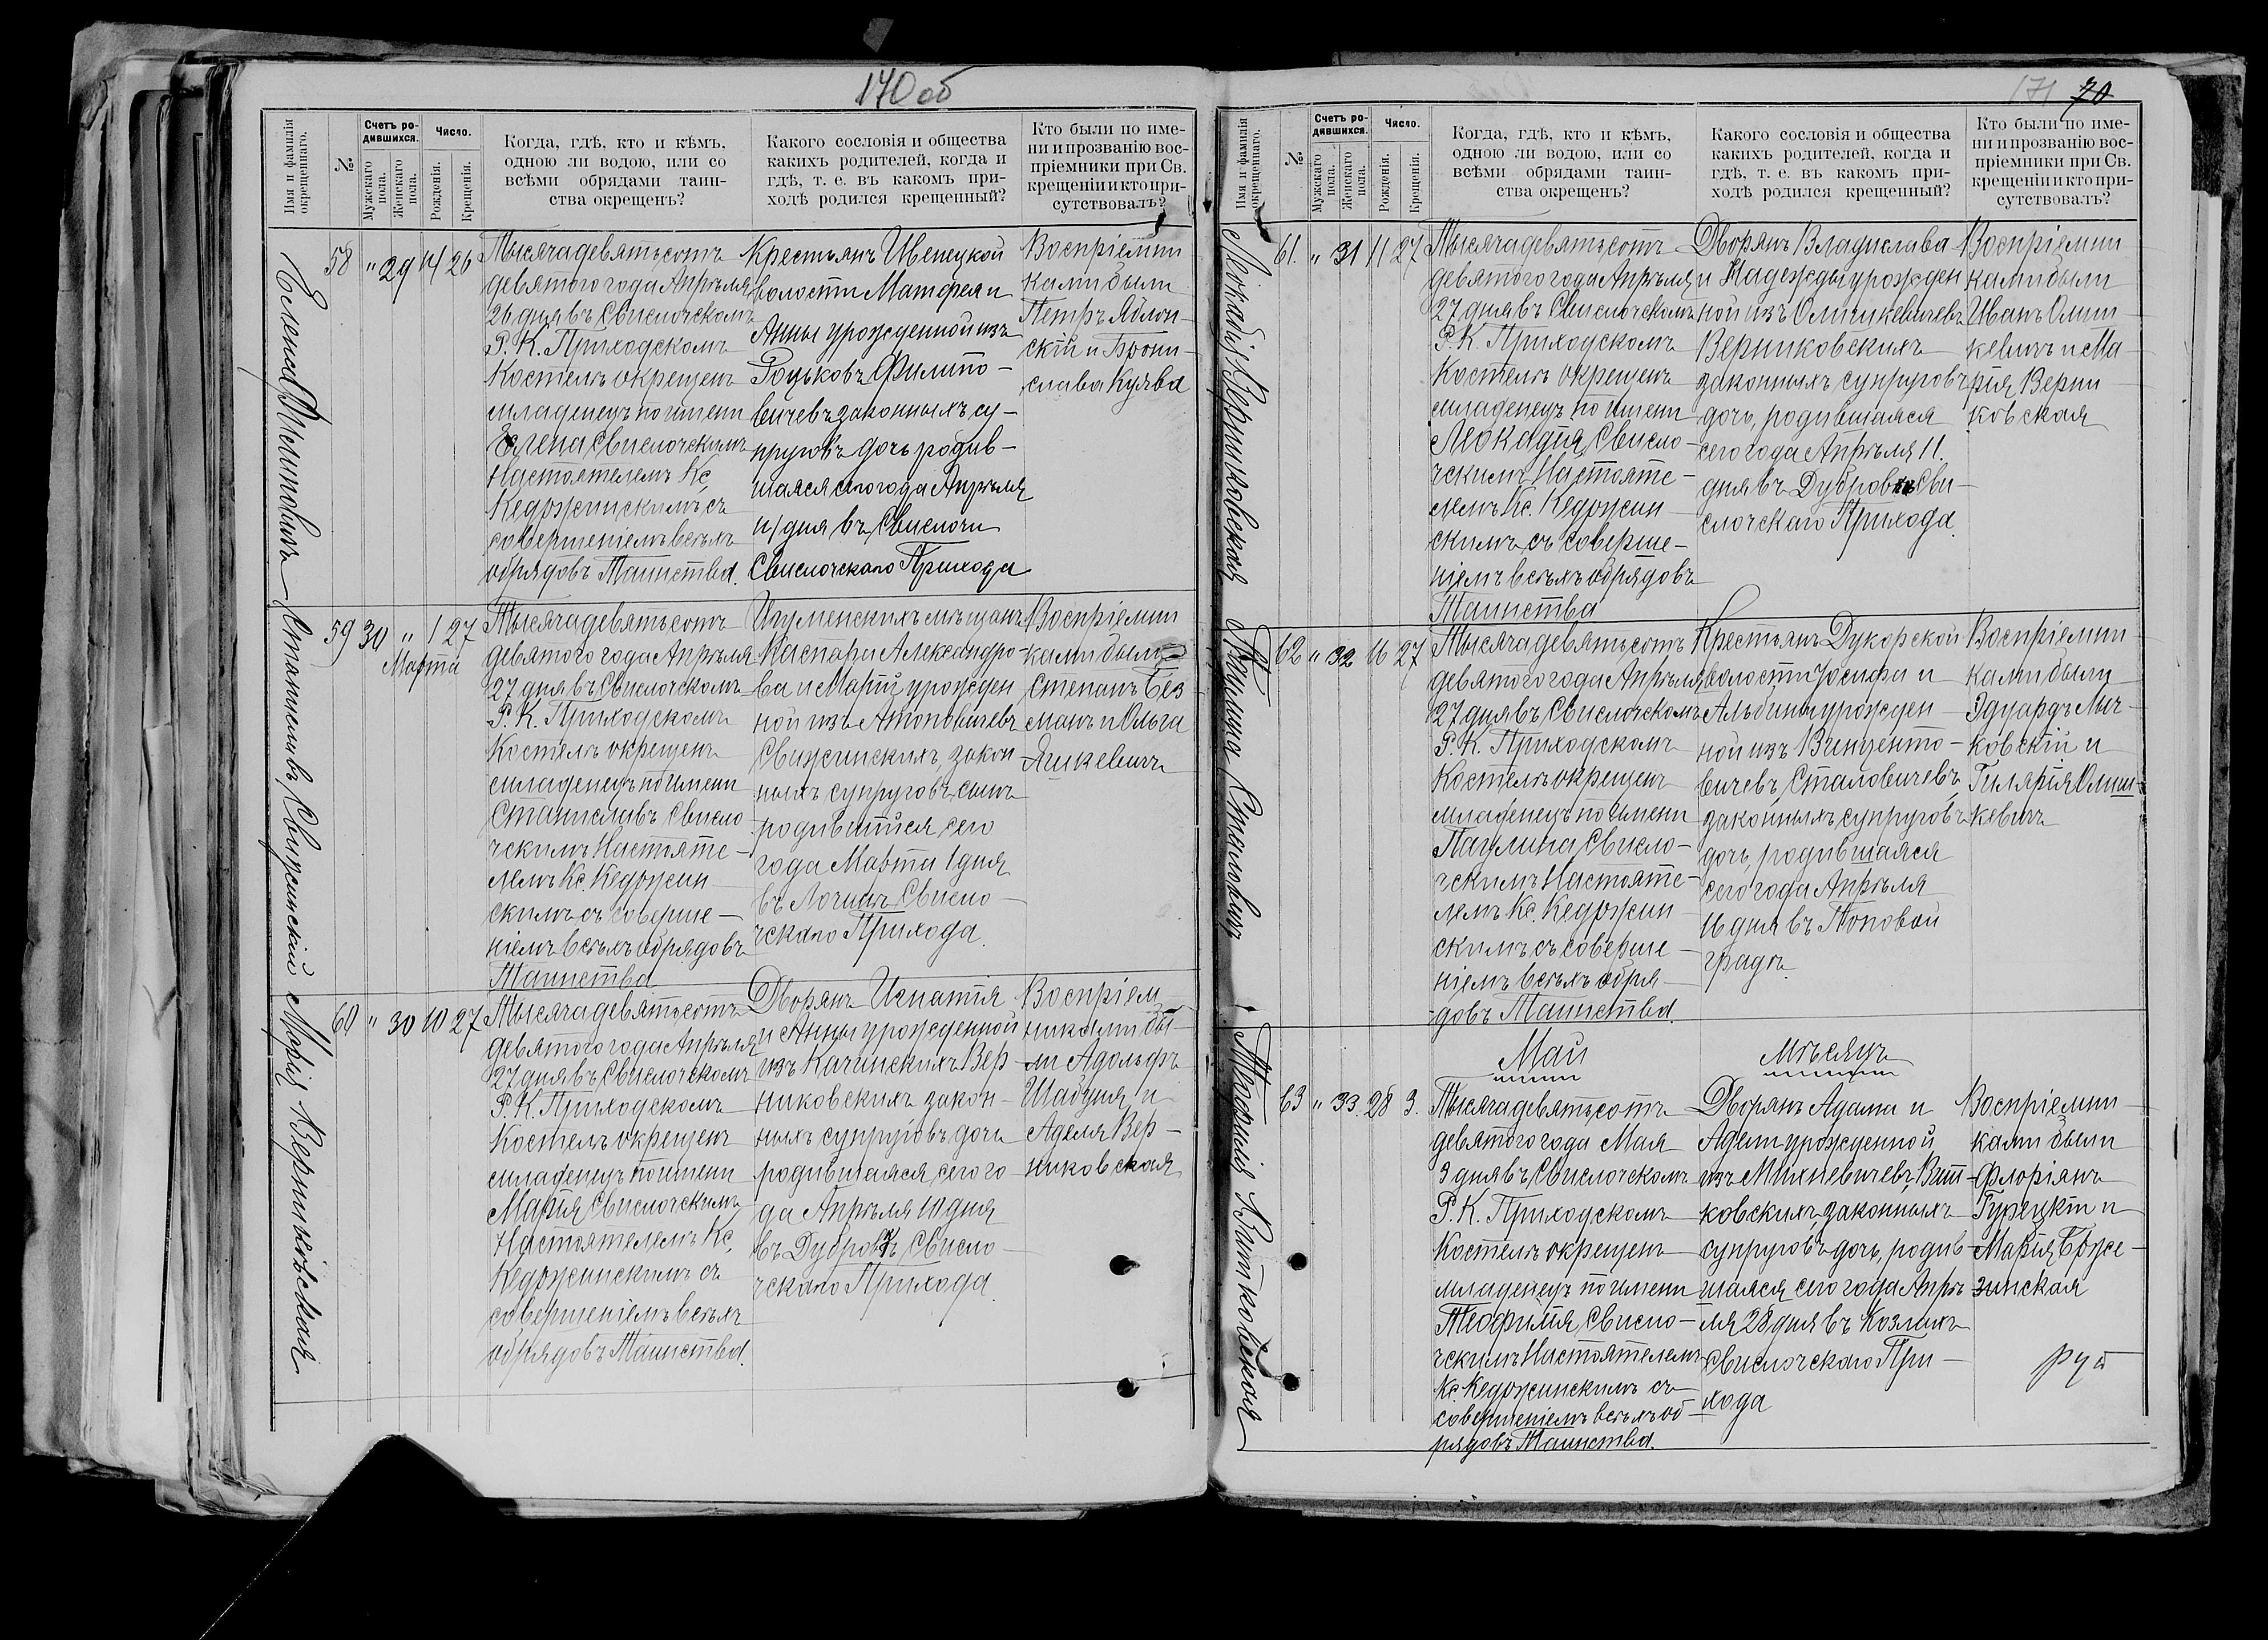 170 об
Имя и фамилія окрещеннаго.
№
Счетъ ро-
дившихся.
Мужскаго пола.
Женскаго пола.
Число.
Рожденія.
Крещенія.
Когда, гдѣ, кто и кѣмъ,
одною ли водою, или со
всѣми обрядами таин-
ства окрещенъ?
Какого сословія и общества
какихъ родителей, когда и
гдѣ, т. е. въ какомъ при-
ходѣ родился крещенный?
Кто были по име-
ни и прозванію вос-
пріемники при Св.
крещеніи и кто при-
сутствовалъ?
Елена Филиповичъ
58 " 29 14 26
Тысяча девятьсотъ
девятого года Апрѣля
26 дня въ Свислочскомъ
Р. К. Приходскомъ
Костелѣ окрещенъ
младенецъ по имени
Елена Свислочскимъ
Настоятелемъ Кс.
Кедржинскимъ съ
совершеніемъ всѣхъ
обрядовъ Таинства.
Крестьянъ Ивенецкой
волости Матфея и
Анны урожденной изъ
Филипо-
вичевъ законныхъ су-
пруговъ дочь родив-
шаяся сего года Апрѣля
14 дня въ Свислочи
Свислочского Прихода
Воспріемни
ками были
Петръ Яблон-
скій и Брони-
слава Куява
Станиславъ Свижинскій
59 30 " 1 27
Марта
Тысяча девятьсотъ
девятого года Апрѣля
27 дня въ Свислочскомъ
Р. К. Приходскомъ
Костелѣ окрещенъ
младенецъ по имени
Станиславъ Свисло
чскимъ Настояте-
лемъ Кс. Кедржин
скимъ съ соверше-
ніемъ всѣхъ обрядовъ
Таинства
Игуменскихъ мѣщанъ
Каспара Александро-
ва и Маріи урожден
ной изъ Антоновичевъ
Свижинскихъ, закон
ныхъ супруговъ, сынъ
родившійся сего
года Марта 1 дня
въ Свисло-
чского Прихода.
Воспріемни
ками были
Степанъ Без
манъ и Ольга
Яцкевичъ
Марія Верниковская
60 " 30 10 27
Тысяча девятьсотъ
девятого года Апрѣля
27 дня въ Свислочскомъ
Р. К. Приходскомъ
Костелѣ окрещенъ
младенецъ по имени
Марія Свислочскимъ
Настоятелемъ Кс.
Кедржинскимъ съ
совершеніемъ всѣхъ
обрядовъ Таинства.
Дворянъ Игнатія
и Анны урожденной
изъ Качинскихъ Вер-
никовскихъ закон-
ныхъ супруговъ, дочь
родившаяся, сего го-
да Апрѣля 10 дня
въ Дубровѣ, Свисло-
чского Прихода.
Воспріем
никами бы-
ли Адольфъ
Шабуня и
Аделя Вер-
никовская
171 70
Имя и фамилія окрещеннаго.
№
Счетъ ро-
дившихся.
Мужскаго пола.
Женскаго пола.
Число.
Рожденія.
Крещенія.
Когда, гдѣ, кто и кѣмъ,
одною ли водою, или со
всѣми обрядами таин-
ства окрещенъ?
Какого сословія и общества
какихъ родителей, когда и
гдѣ, т. е. въ какомъ при-
ходѣ родился крещенный?
Кто были по име-
ни и прозванію вос-
пріемники при Св.
крещеніи и кто при-
сутствовалъ?
Леокадія Верниковская
61. " 31 11 27
Тысяча девятьсотъ
девятого года Апрѣля
27 дня въ Свислочскомъ
Р. К. Приходскомъ
Костелѣ окрещенъ
младенецъ по имени
Леокадія, Свисло-
чскимъ Настояте-
лемъ Кс. Кедржин-
скимъ съ соверше-
ніемъ всѣхъ обрядовъ
Таинства
Дворянъ Владислава
и Надежды урожден
ной изъ Олишкевичевъ
Верниковскихъ
законныхъ супруговъ
дочь, родившаяся
сего года Апрѣля 11.
дня въ Дубровѣ Сви-
слочскаго Прихода.
Воспріемни
ками были
Иванъ Олиш-
кевичъ и Ма-
рія Верни
ковская
Паулина Сталовичъ
62 " 32 16 27
Тысяча девятьсотъ
девятого года Апрѣля
27 дня въ Свислочскомъ
Р. К. Приходскомъ
Костелѣ окрещенъ
младенецъ по имени
Паулина, Свисло-
чскимъ Настояте-
лемъ Кс. Кедржин
скимъ съ соверше-
ніемъ всѣхъ обря-
довъ Таинства.
Крестьянъ Дукорской
волости Іосифа и
Альбины урожден
ной изъ Винценто-
вичевъ, Сталовичевъ
законныхъ супруговъ
дочь, родившаяся
сего года Апрѣля
16 дня въ Поповой
градѣ.
Воспріемни
ками были
Эдуардъ Мыч-
ковскій и
Гилярія Олиш-
кевичъ
Май мѣсяцъ
Теофилія Витковская
63 " 33. 28 3.
Тысяча девятьсотъ
девятого года Мая
3 дня въ Свислочскомъ
Р. К. Приходскомъ
Костелѣ окрещенъ
младенецъ по имени
Теофилія, Свисло-
чскимъ Настоятелемъ
Кс. Кедржинскимъ съ
совершеніемъ всѣхъ об-
рядовъ Таинства.
Дворянъ Адама и
Адели урожденной
изъ Михневичевъ, Вит-
ковскихъ, законныхъ
супруговъ дочь, родив-
шаяся сего года Апрѣ
ля 28 дня въ Козлихъ
Свислочскаго При-
хода
Воспріемни
ками были
Флоріянъ
Турецкій и
Марія Брже-
зинская